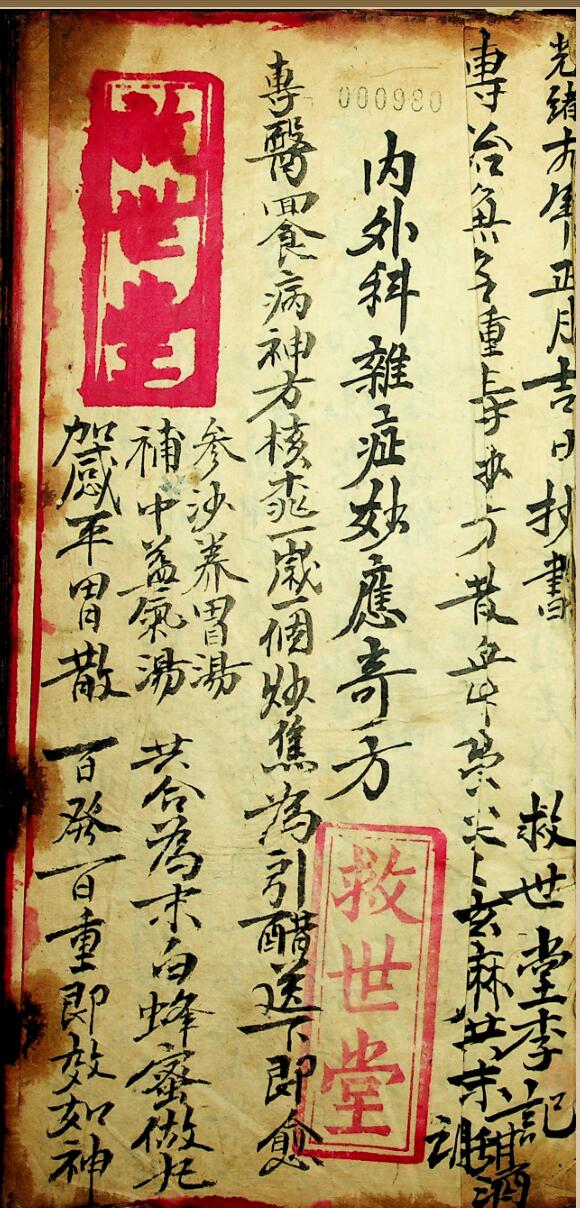 光緒 年正月吉日抄書 救世堂李記
專治無名 重 方 麻共末 調甜酒
000980
內外科雜症妙應奇方
專醫噐食病神方核桃一歲一個炒焦為引醋送下即愈
參沙养胃湯
補中益氣湯 共合為末白蜂蜜做丸
加感平胃散 一百發一百重即效如神
救世堂
救世堂